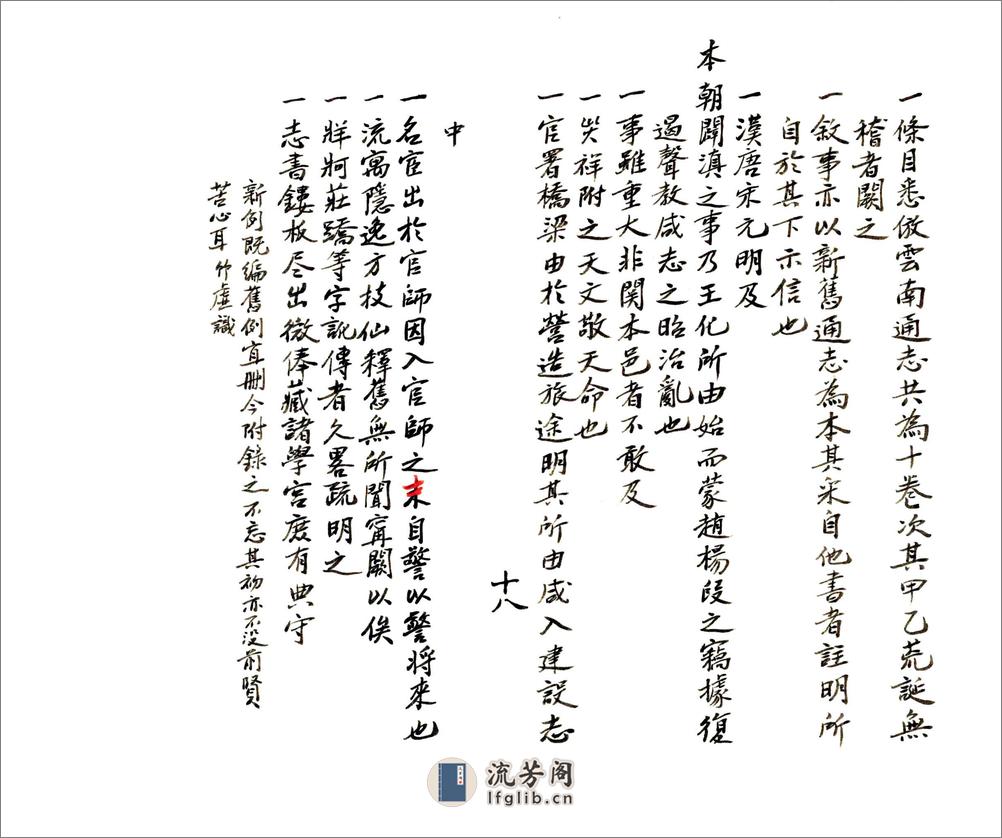 一條目悉倣雲南通志共為十卷次其甲乙荒誕無
稽者闕之
一敘事亦以新舊通志為本其采自他書者註明所
自於其下示信也
一漢唐宋元明及
本朝闢滇之事乃王化所由始而蒙趙楊段之竊據復
遏聲教咸志之昭治亂也
一事雖重大非関本邑者不敢及
一災祥附之天文敬天命也
一官署橋梁由於營造旅途明其所由咸入建設志
十八
中
一名宦出於官師因入官師之末自警以警將來也
一流寓隱逸方技仙釋舊無所聞寧闕以俟
一牂牁莊蹻等字訛傳者久畧疏明之
一志書鏤板尽出微俸藏諸學宮庶有典守
新例既編舊例宜刪今附錄之不忘其初亦不没前賢
苦心耳竹虛識
流芳阁
lfglib.cn